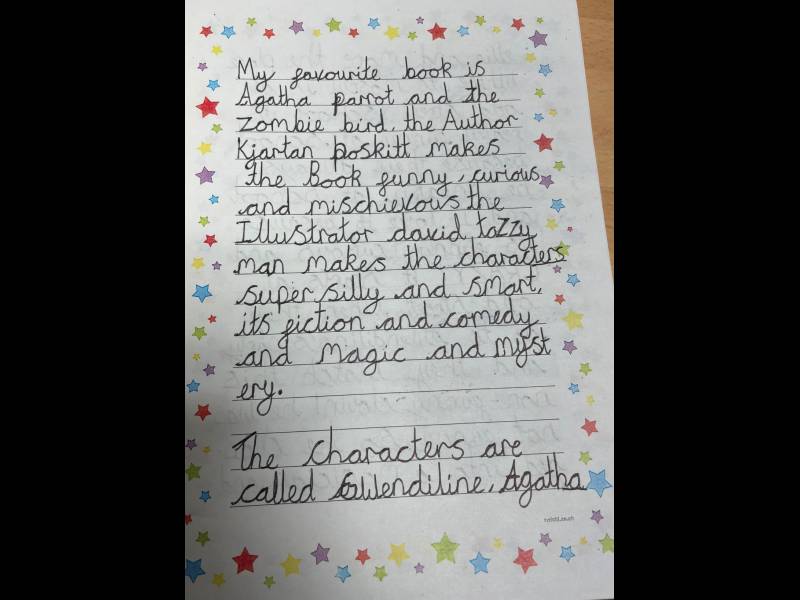 My favourite book is
Agatha parrot and the
zombie bird, the Author
Kjartan poskitt makes
the Book funny, curious
and mischievous the
Illustrator david tazzy
man makes the characters
super silly and smart,
its fiction and comedy
and magic and myst
ery.
The characters are
called Gwendiline, Agatha